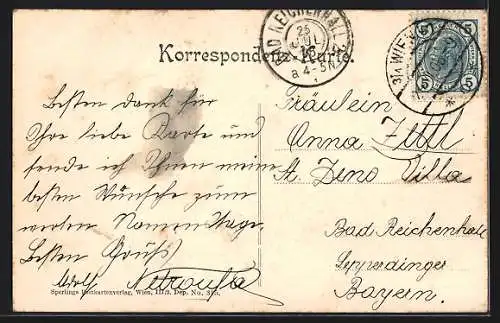 Korrespondenz-Karte.
BAD REICHENHALL
25
JUL
4-5 N
3/1 WIEN
5 5
5 5
Besten Dank für
Ihre liebe Karte und
sende ich Ihnen meine
besten Wünsche zum
werten Namenstage.
Besten Gruß
Adolf
Fräulein
Anna Zittl
St. Zeno Villa
Bad Reichenhall
Bayern.
Sperlings Postkartenverlag, Wien, III/3, Dep. No.